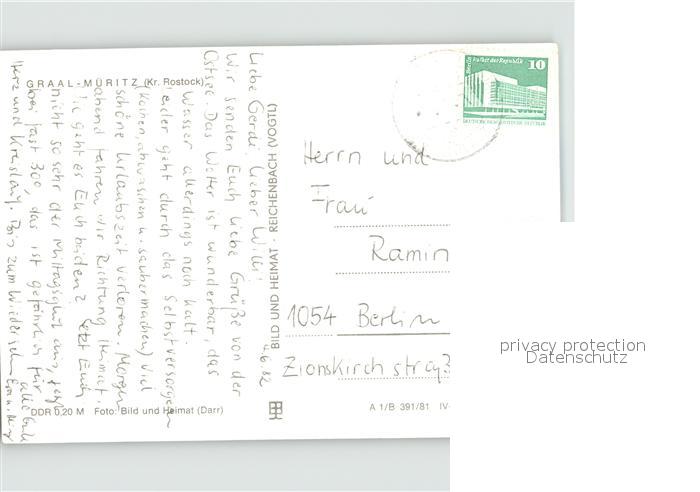 GRAAL-MÜRITZ (Kr. Rostock)
4.6.82
Liebe Gerdi, lieber Willi!
Wir senden Euch liebe Grüße von der
Ostsee. Das Wetter ist wunderbar, das
Wasser allerdings noch kalt.
Leider geht durch das Selbstversorgen
(kochen, abwaschen u. saubermachen) viel
schöne Urlaubszeit verloren. Morgen
abend fahren wir Richtung Heimat.
Wie geht es Euch beiden? Setzt Euch
nicht so sehr der Mittagsglut aus, jetzt
bei fast 30°, das ist gefährlich für
Herz und Kreislauf. Bis zum Wiedersehen
DDR 0,20 M Foto: Bild und Heimat (Darr)
BILD UND HEIMAT · REICHENBACH (VOGTL)
Berlin Palast der Republik 10
DEUTSCHE DEMOKRATISCHE REPUBLIK
Herrn und
Frau
Ramin
1054 Berlin
Zionskirchstraß
A 1/B 391/81 IV-
privacy protection
Datenschutz